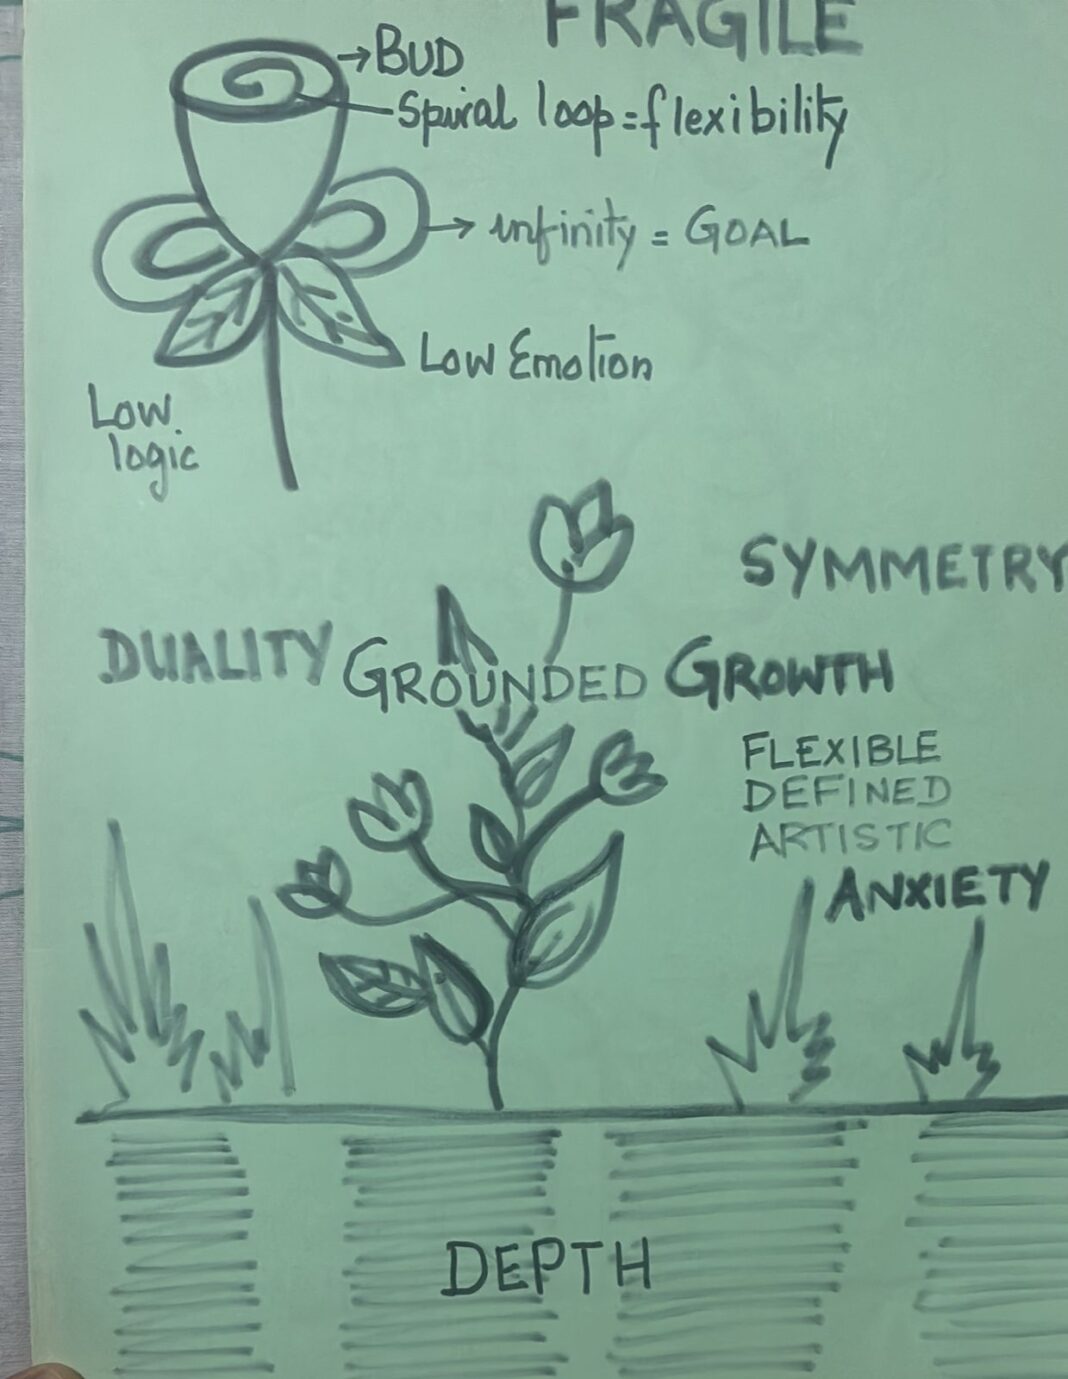 FRAGILE
BUD
Spiral loop = flexibility
infinity = GOAL
Low Emotion
Low
logic
SYMMETRY
DUALITY GROUNDED GROWTH
FLEXIBLE
DEFINED
ARTISTIC
ANXIETY
DEPTH